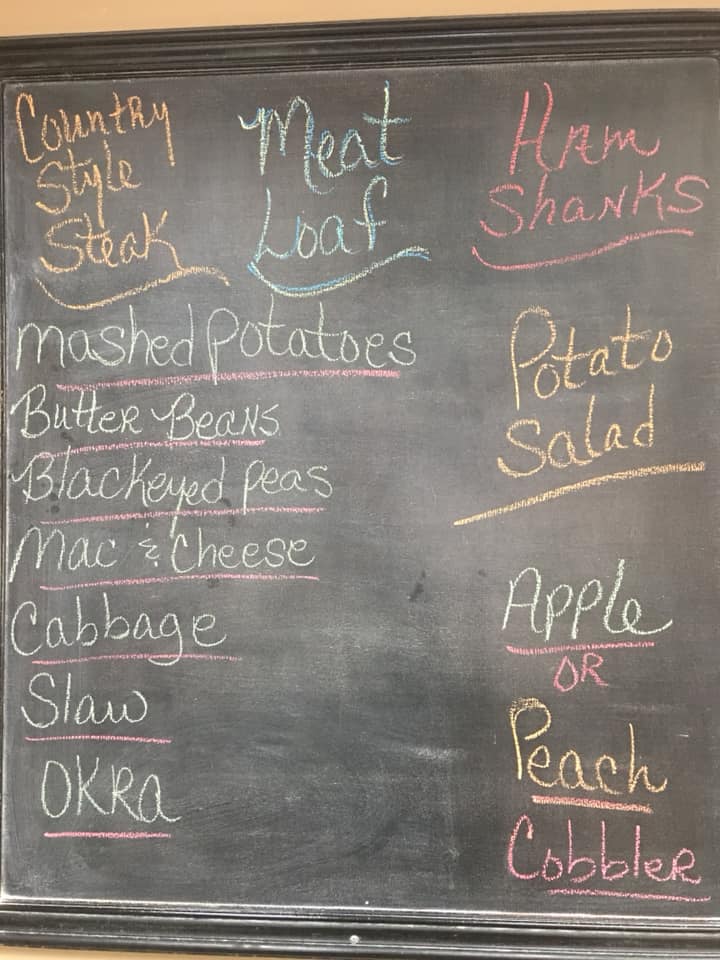 Country
Style
Steak
Meat
Loaf
Ham
Shanks
mashed potatoes
Butter Beans
Blackeyed peas
Mac & Cheese
Cabbage
Slaw
OKRa
Potato
Salad
Apple
OR
Peach
Cobbler